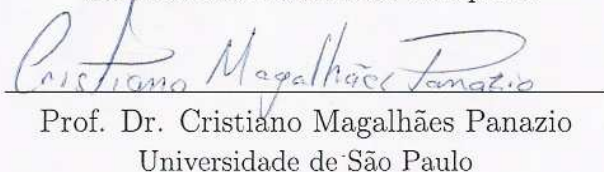 Cristiano Magalhães Panazio
Prof. Dr. Cristiano Magalhães Panazio
Universidade de São Paulo